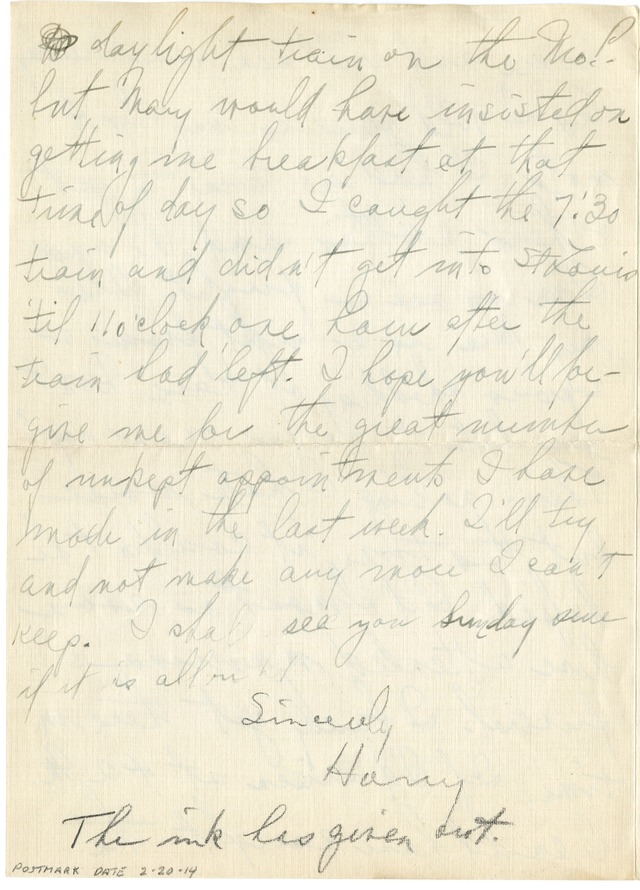 daylight train on the Mo.P.
but Mary would have insisted on
getting me breakfast at that
time of day so I caught the 7:30
train and didn't get into St Louis
'til 11 o'clock one hour after the
train had left. I hope you'll for-
give me for the great number
of unkept appointments I have
made in the last week. I'll try
and not make any more I can't
keep. I shall see you Sunday sure
if it is all
Sincerely
Harry
The ink has given out.
POSTMARK DATE 2-20-14